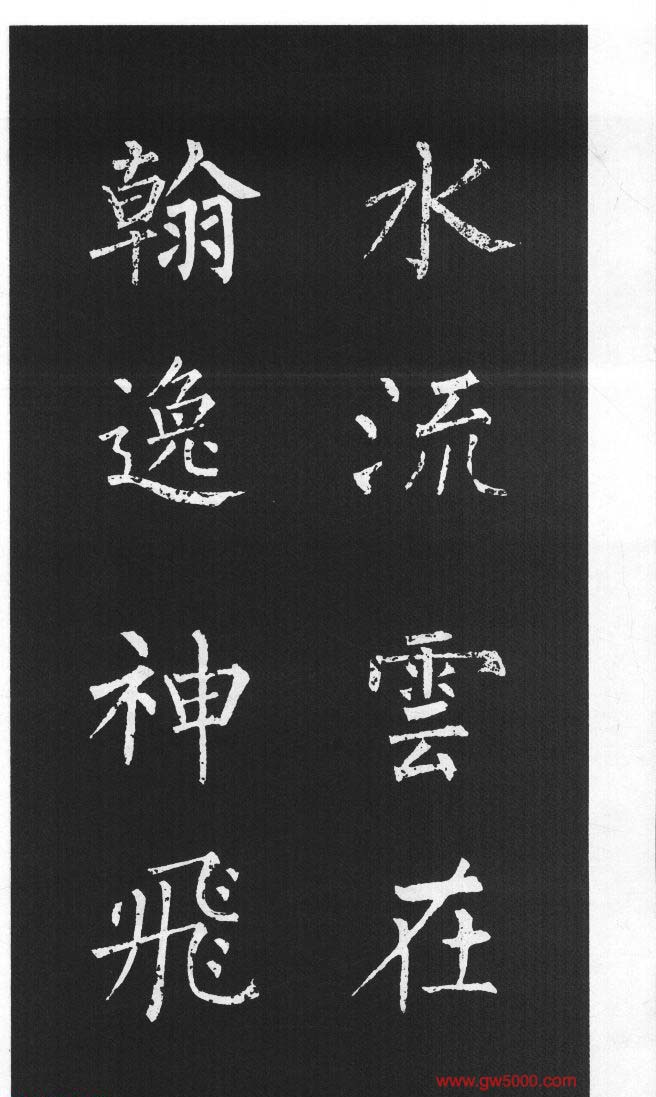 水流雲在
翰逸神飛
www.gw5000.com